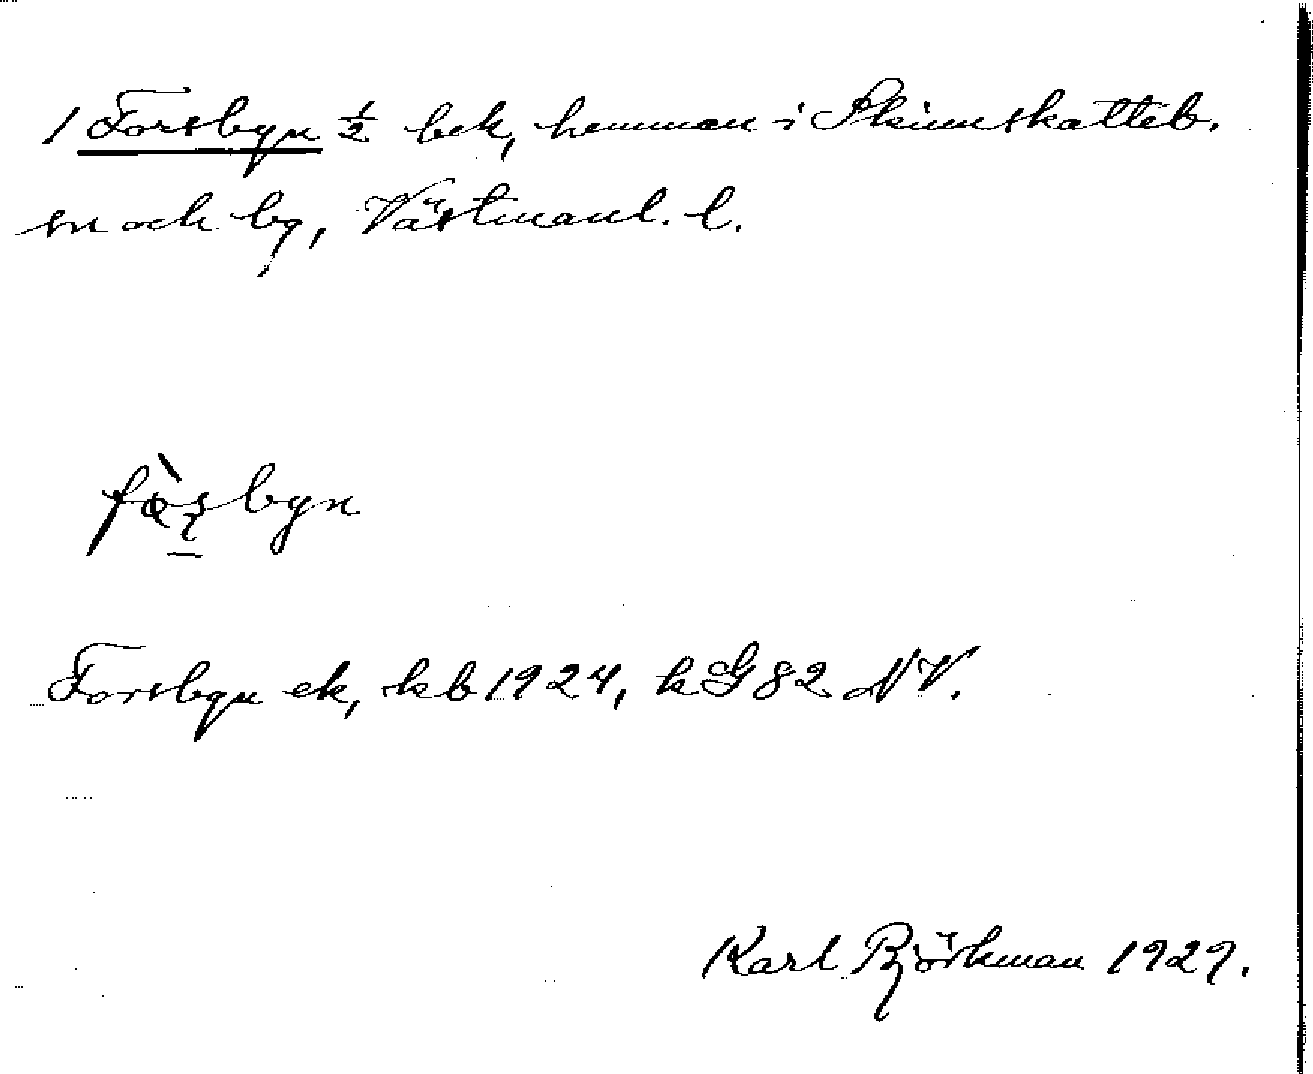 1 Forsbyn ½ bek, hemman i Skinnskatteb.
sn och bg, Västmanl. l.
fòsbyn
Forsbyn ek, kb 1924, kG 82 NV.
Karl Björkman 1929.